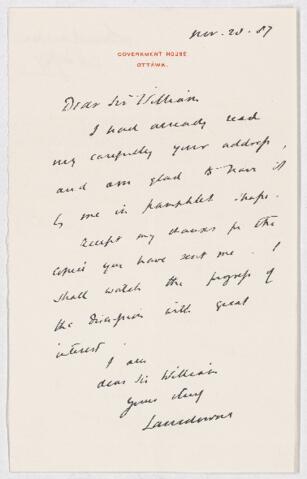 Nov. 20. 87
GOVERNMENT HOUSE
OTTAWA.
Dear Sir William
I had already read
very carefully your address,
and am glad to have it
by me in pamphlet shape.
Accept my thanks for the
copies you have sent me. I
shall watch the progress of
the discussion with great
interest.
I am
dear Sir William
Yours truly
Lansdowne